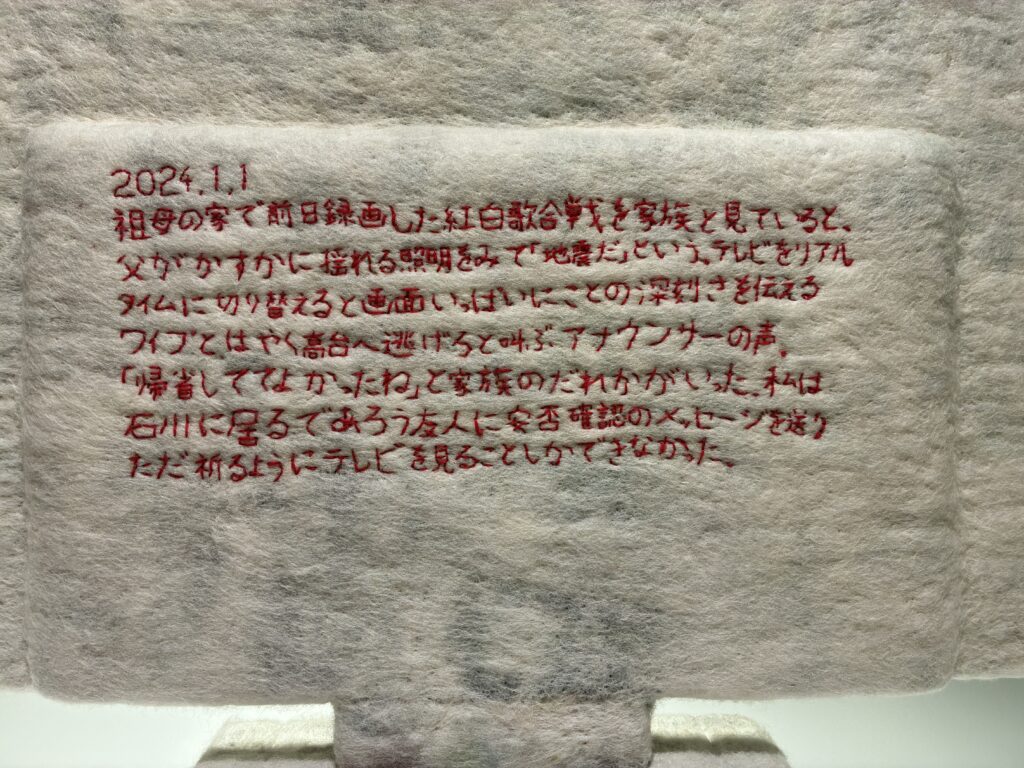 2024.1.1
祖母の家で前日録画した紅白歌合戦を家族と見ていると、
父がかすかに揺れる照明をみて「地震だ」という。テレビをリアル
タイムに切り替えると画面いっぱいにことの深刻さを伝える
ワイプと、はやく高台へ逃げろと叫ぶアナウンサーの声。
「帰省しててよかったね」と家族のだれかがいった。私は
石川に居るであろう友人に安否確認のメッセージを送り
ただ祈るようにテレビを見ることしかできなかった。